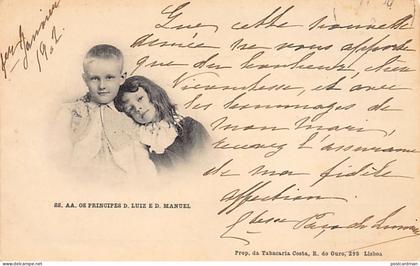 1er Janvier
1902
Que cette nouvelle
année ne vous apporte
que du bonheur, chère
Vicomtesse, et avec
les hommages de
mon mari,
recevez l'assurance
de ma fidèle
affection.
SS. AA. OS PRINCIPES D. LUIZ E D. MANUEL
Prop. da Tabacaria Costa, R. do Ouro, 295 Lisboa
postcardman